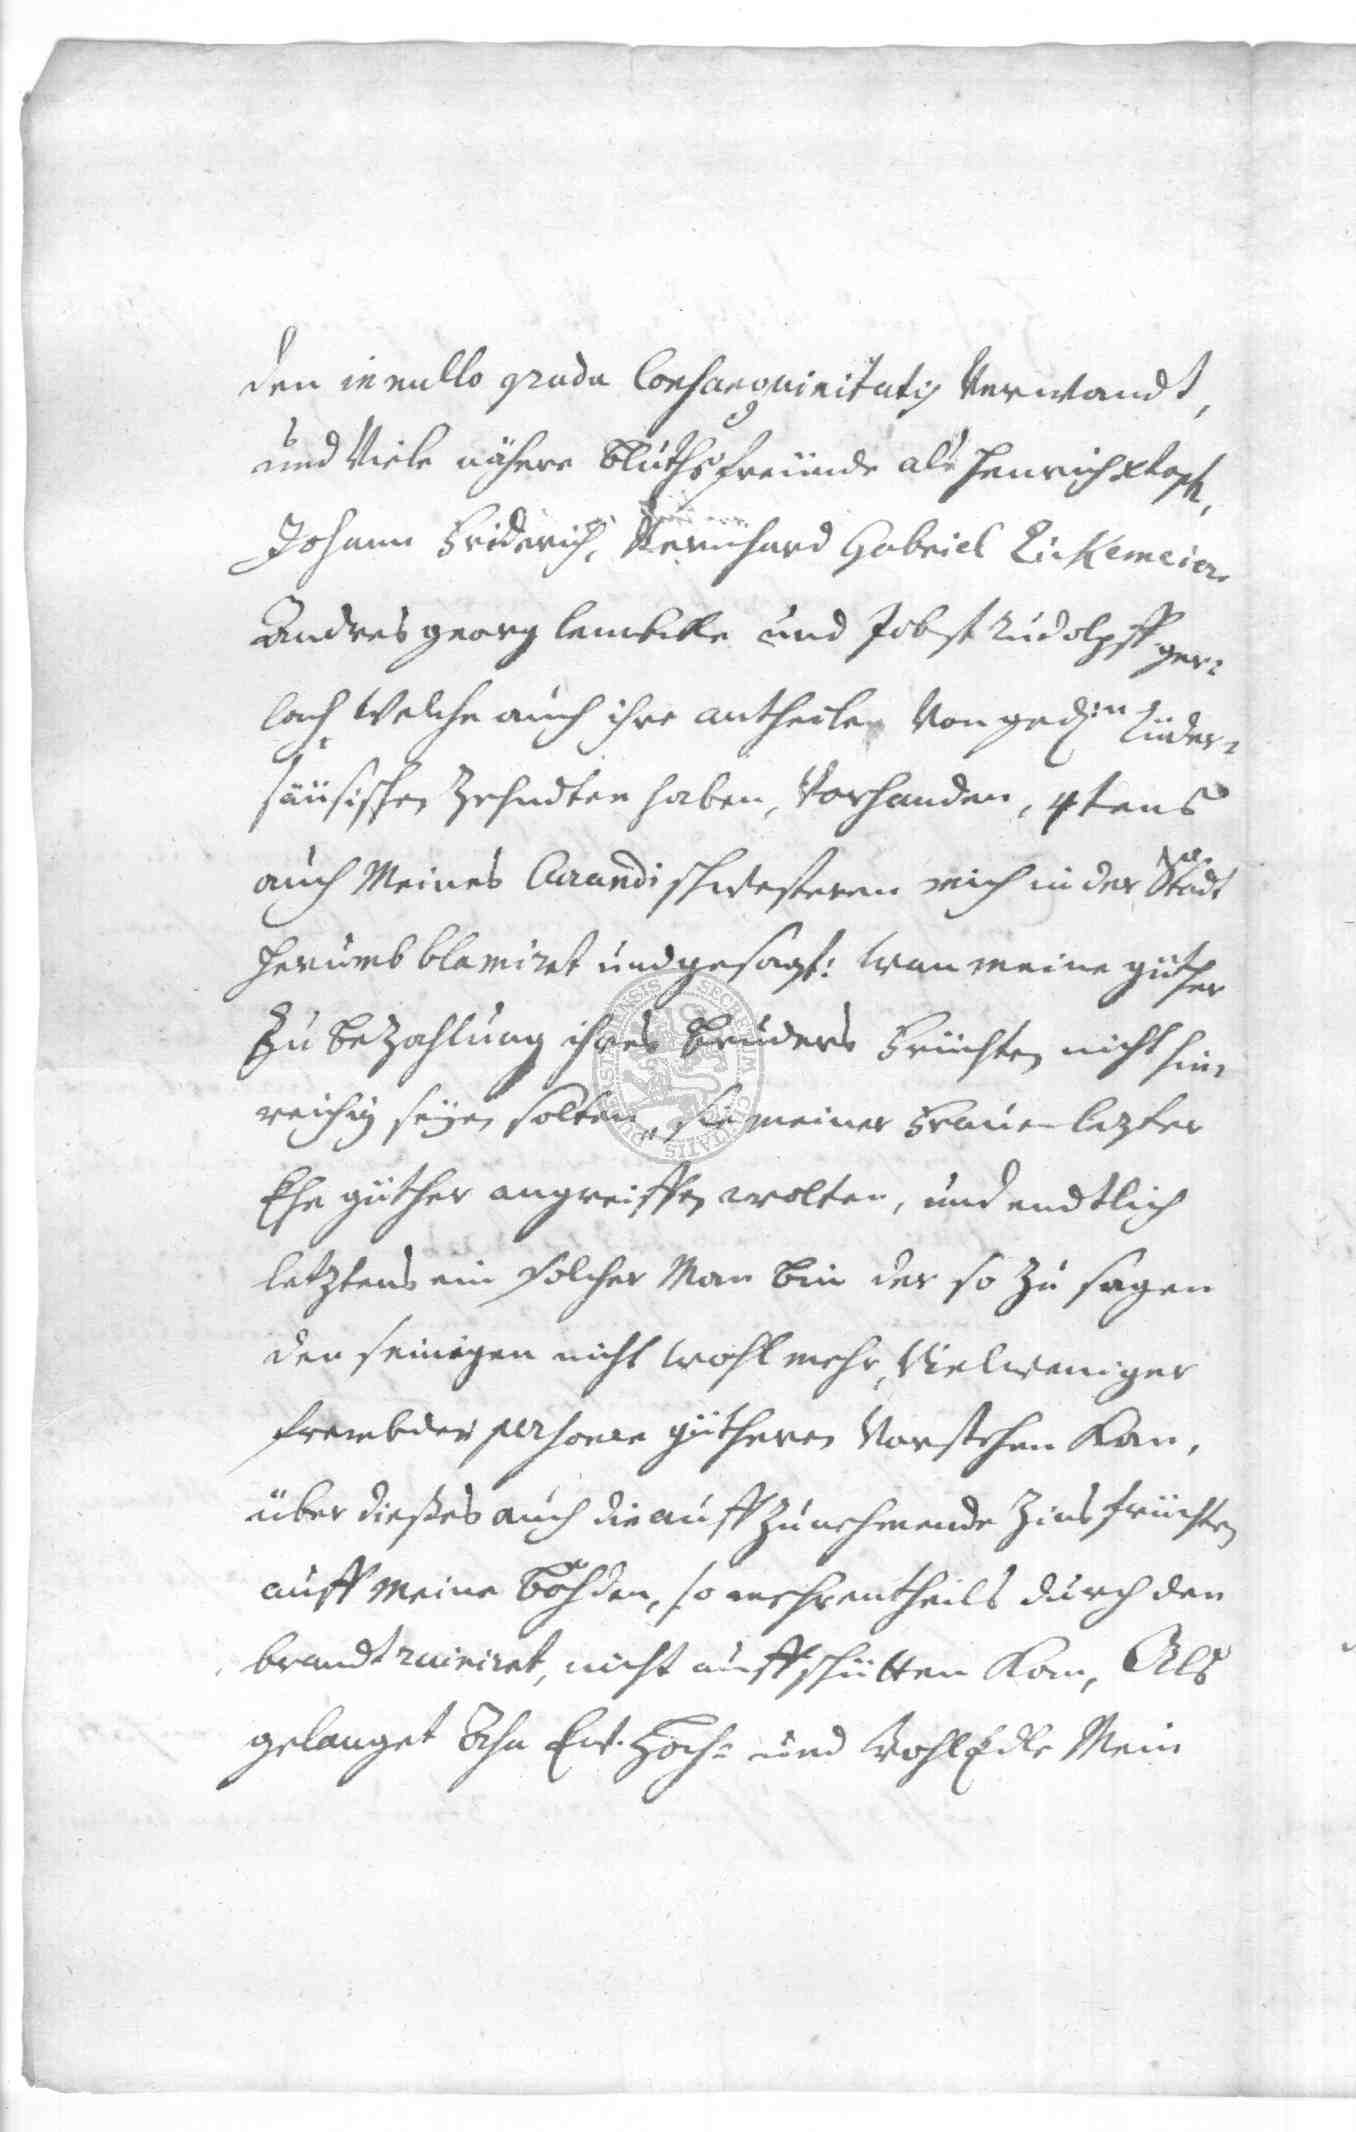 den in nullo gradu Consanguinitatis Verwandt,
und Viele nähere bluthsfreünde als Henrich xstoph,
Johann Friderich, Bernhard Gabriel Lückemeier,
Andres georg lembke und Jobst Rudolpff ger=
lach welche auch ihre antheile Von ged:ten Lüder=
säusischen Zehndten haben, Vorhanden, 4tens
auch Meines Curandi schwesteren mich in der Stadt
herumb blamiret und gesagt: wan meine güther
Zu bezahlung ihres bruders Früchten nicht hin=
reichig seyn solten, sie meiner Frauen lezter
Ehe güther angreiffen wolten, und endtlich
letztens ein solcher Man bin der so zu sagen
den seinigen nicht wohl mehr, Vielweniger
frembder persohnen güthern Vorstehen Kan,
über dießes auch die auff Zunehmende Zinsfrüchten
auff meine böhden, so mehrentheils durch den
brandt ruiniret, nicht auffschütten Kan, Als
gelanget Ahn Ew. Hoch= und WohlEdle Mein
SECRETUM CIVITATIS